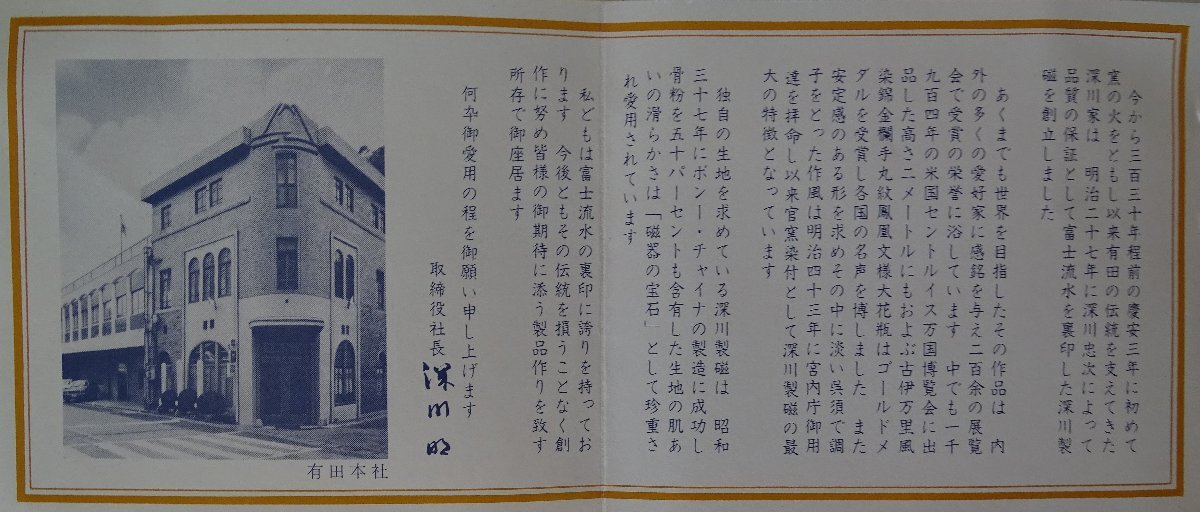 今から三百三十年程前の慶安三年に初めて
窯の火をともし以来有田の伝統を支えてきた
深川家は　明治二十七年に深川忠次によって
品質の保証として富士流水を裏印した深川製
磁を創立しました
あくまでも世界を目指したその作品は　内
外の多くの愛好家に感銘を与え二百余の展覧
会で受賞の栄誉に浴しています　中でも一千
九百四年の米国セントルイス万国博覧会に出
品した高さ二メートルにもおよぶ古伊万里風
染錦金襴手丸紋鳳凰文様大花瓶はゴールドメ
ダルを受賞し各国の名声を博しました　また
安定感のある形を求めその中に淡い呉須で調
子をとった作風は明治四十三年に宮内庁御用
達を拝命し以来官窯染付として深川製磁の最
大の特徴となっています
独自の生地を求めている深川製磁は　昭和
三十七年にボンー・チャイナの製造に成功し
骨粉を五十パーセントも含有した生地の肌あ
いの滑らかさは「磁器の宝石」として珍重さ
れ愛用されています
私どもは富士流水の裏印に誇りを持ってお
ります　今後ともその伝統を損うことなく創
作に努め皆様の御期待に添う製品作りを致す
所存で御座居ます
何卆御愛用の程を御願い申し上げます
取締役社長　深川明
有田本社